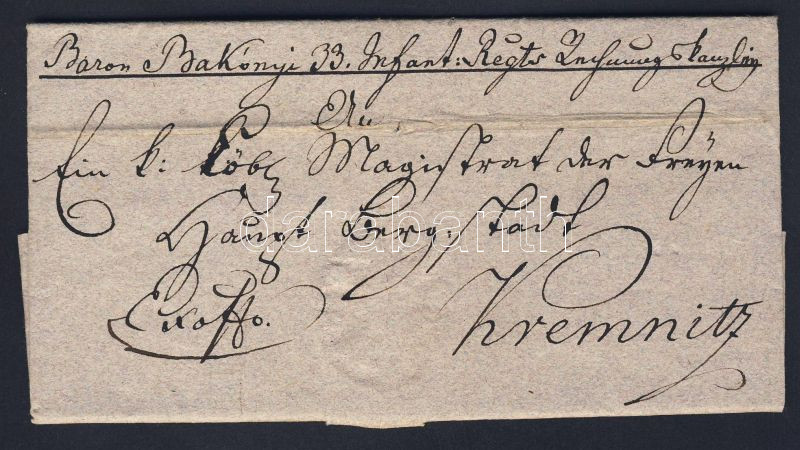 Baron Bakonyi 33. Infant: Regts Rechnungskanzley
An
Ein k: Löbl Magistrat der Freyen
Haupt Berg-Stadt
Exoffo.
Kremnitz
darabanth